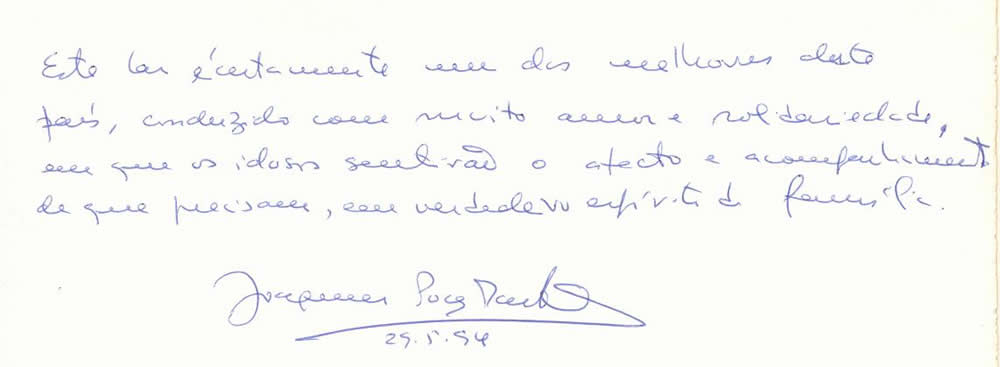 Este lar é certamente um dos melhores deste
país, conduzido com muito amor e solidariedade,
em que os idosos sentirão o afecto e acompanhamento
de que precisam, em verdadeiro espírito de família.
Joaquim
29.5.94